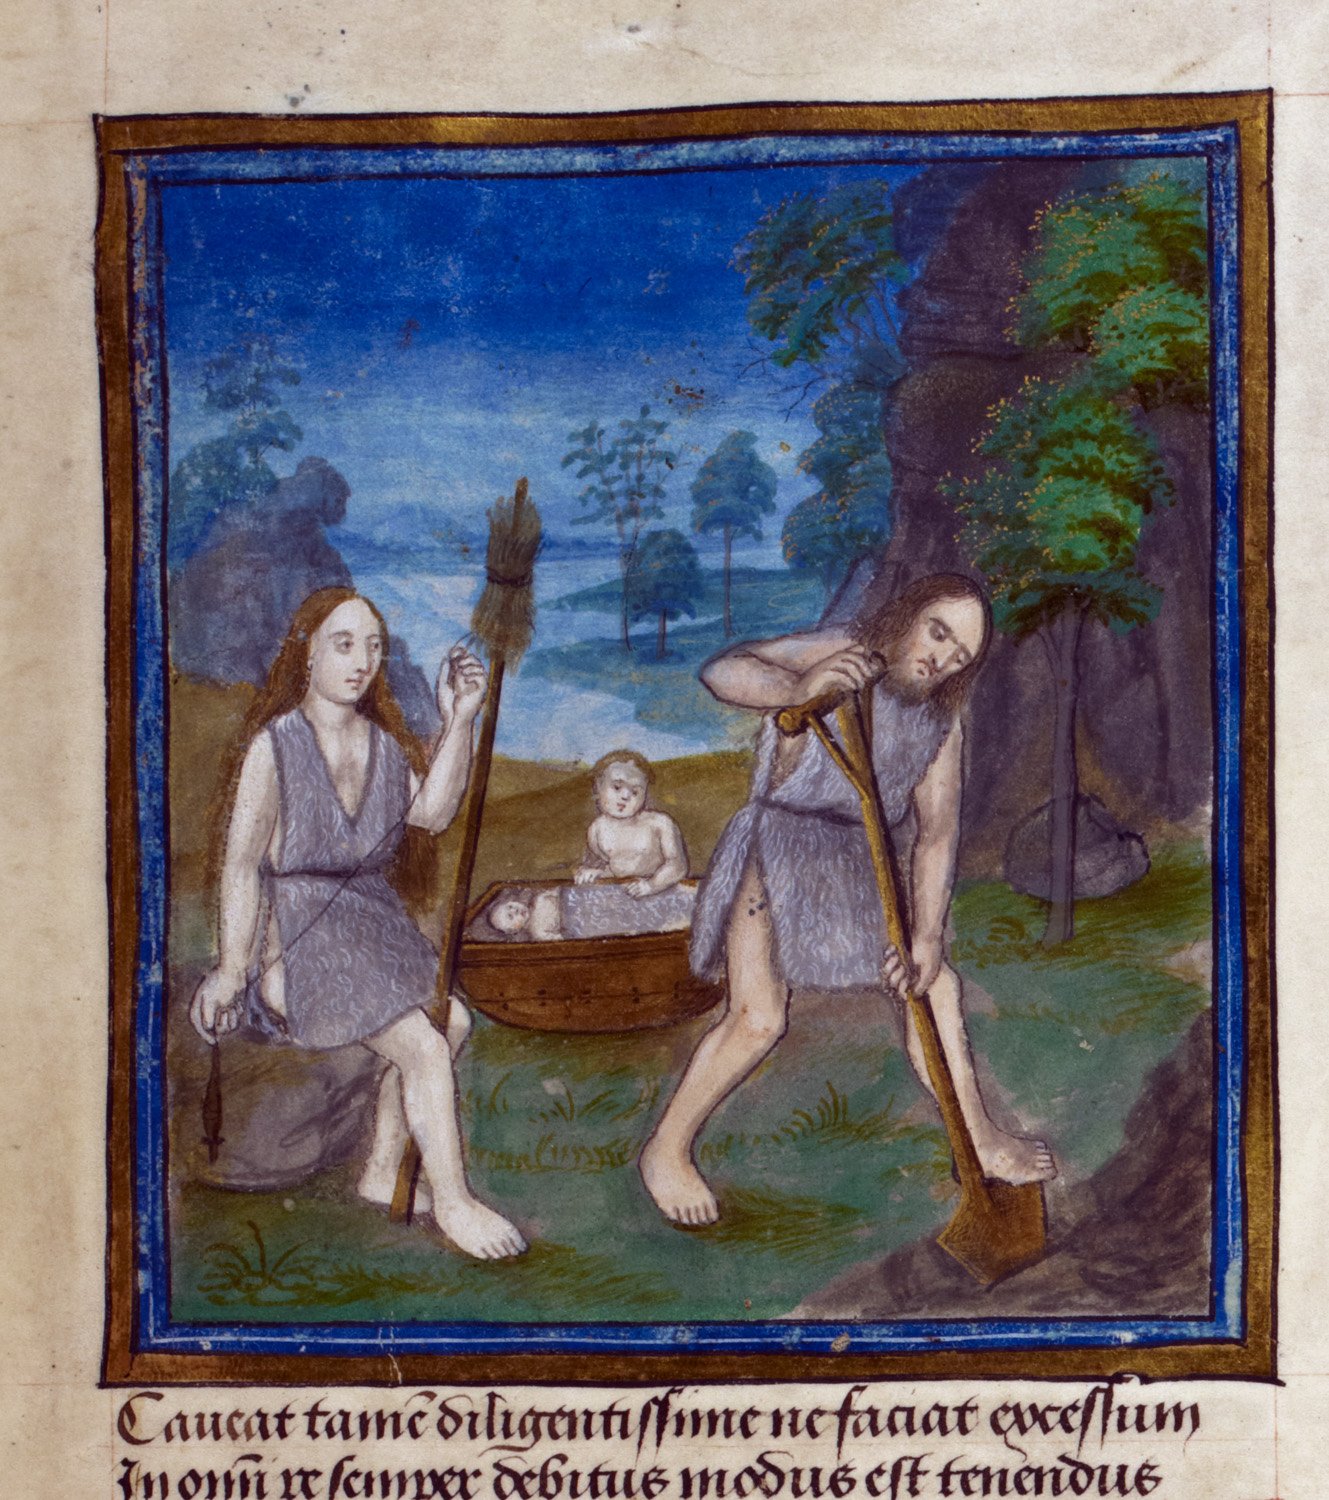 Caueat tamē diligentissime ne faciat excessum
In om̄i re semper debitus modus est tenendus